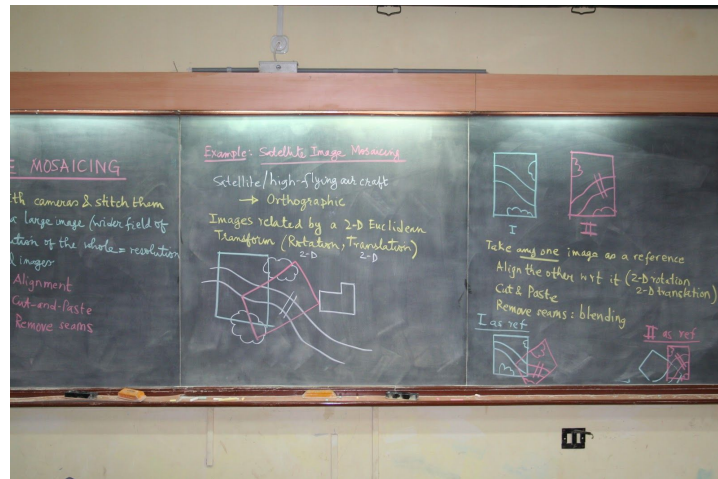 E MOSAICING
ith cameras & stitch them
large image (wider field of
ution of the whole = resolution
images
Alignment
Cut-and-Paste
Remove seams
Example: Satellite Image Mosaicing
Satellite/high-flying air craft
→ Orthographic
Images related by a 2-D Euclidean
Transform (Rotation, Translation)
2-D 2-D
I II
Take any one image as a reference
Align the other wrt it (2-D rotation
2-D translation)
Cut & Paste
Remove seams: blending
I as ref
II as ref